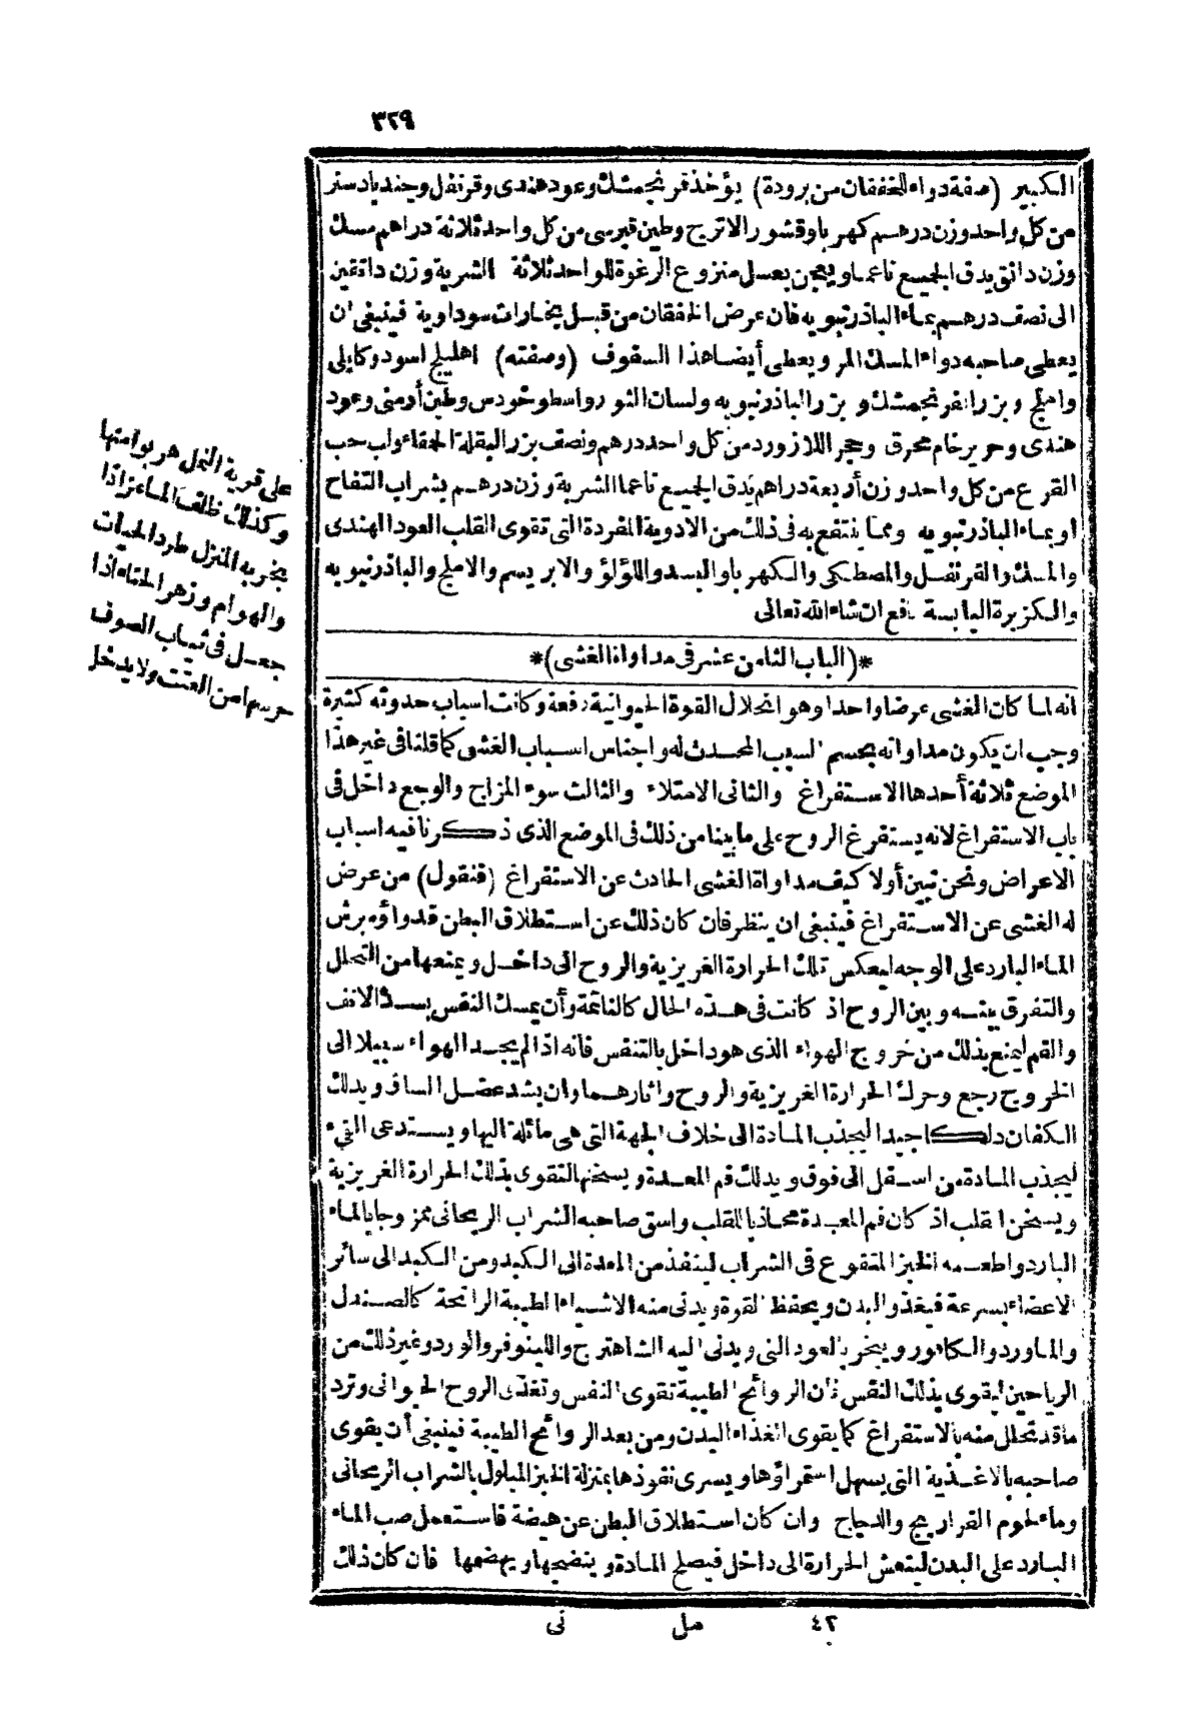 ٣٢٩
الكبير (صفة دواء للخفقان من برودة) يؤخذ فرنجمشك وعود هندى وقرنفل وجندبادستر
من كل واحد وزن درهم كهربا وقشور الاترج وطين قبرسى من كل واحد ثلاثة دراهم مسك
وزن دانق يدق الجميع ناعما ويعجن بعسل منزوع الرغوة للواحد ثلاثة الشربة وزن دانقين
الى نصف درهم بماء الباذرنبويه فان عرض الخفقان من قبل بخارات سوداوية فينبغى ان
يعطى صاحبه دواء المسك المر ويعطى أيضا هذا السفوف (وصفته) اهليلج اسود وكابلى
واملج وبزر افرنجمشك وبزر الباذرنبويه ولسان الثور واسطوخودس وطين أرمنى وعود
هندى وحرير خام محرق وحجر اللازورد من كل واحد درهم ونصف بزر البقلة الحمقاء ولب حب
القرع من كل واحد وزن أربعة دراهم يدق الجميع ناعما الشربة وزن درهم بشراب التفاح
او بماء الباذرنبويه ومما ينتفع به فى ذلك من الادوية المفردة التى تقوى القلب العود الهندى
والمسك والقرنفل والمصطكى والكهربا والبسد واللؤلؤ والابريسم والاملج والباذرنبويه
والكزبرة اليابسة نافع ان شاء الله تعالى
*(الباب الثامن عشر فى مداواة الغشى)*
انه لما كان الغشى عرضا واحدا وهو انحلال القوة الحيوانية دفعة وكانت اسباب حدوثه كثيرة
وجب ان يكون مداواته بحسم السبب المحدث له واجناس اسباب الغشى كما قلنا فى غير هذا
الموضع ثلاثة أحدها الاستفراغ والثانى الامتلاء والثالث سوء المزاج والوجع داخل فى
باب الاستفراغ لانه يستفرغ الروح على ما بينا من ذلك فى الموضع الذى ذكرنا فيه اسباب
الاعراض ونحن نبين أولا كيف مداواة الغشى الحادث عن الاستفراغ (فنقول) من عرض
له الغشى عن الاستفراغ فينبغى ان ينظر فان كان ذلك عن استطلاق البطن فدواؤه برش
الماء البارد على الوجه ليعكس تلك الحرارة الغريزية والروح الى داخل ويمنعها من التحلل
والتفرق بينه وبين الروح اذ كانت فى هذه الحال كالنائمة وأن يمسك النفس بسد الانف
والفم ليمنع بذلك من خروج الهواء الذى هو داخل بالتنفس فانه اذا لم يجد الهواء سبيلا الى
الخروج رجع وحرك الحرارة الغريزية والروح واثارهما وان يشد عضل الساق ويدلك
الكفان دلكا جيدا ليجذب المادة الى خلاف الجهة التى هى مائلة اليها ويستدعى القىء
ليجذب المادة من اسفل الى فوق ويدلك فم المعدة ويسخنها لتقوى بذلك الحرارة الغريزية
ويسخن القلب اذ كان فم المعدة محاذيا للقلب واسق صاحبه الشراب الريحانى ممزوجا بالماء
البارد واطعمه الخبز المنقوع فى الشراب لينفذ من المعدة الى الكبد ومن الكبد الى سائر
الاعضاء بسرعة فيغذو البدن ويحفظ القوة ويدنى منه الاشياء الطيبة الرائحة كالصندل
والماورد والكافور ويبخر بالعود النى ويدنى اليه الشاهترج واللينوفر والورد وغير ذلك من
الرياحين ليقوى بذلك النفس فان الروائح الطيبة تقوى النفس وتغذى الروح الحيوانى وترد
ما قد تحلل منه بالاستفراغ كما يقوى الغذاء البدن ومن بعد الروائح الطيبة فينبغى أن يقوى
صاحبه بالاغذية التى يسهل استمراؤها ويسرى نفوذها بمنزلة الخبز المبلول بالشراب الريحانى
وماء لحوم الفراريج والدجاج وان كان استطلاق البطن عن هيضة فاستعمل صب الماء
البارد على البدن لينعش الحرارة الى داخل فيصلح المادة وينضجها ويهضمها فان كان ذلك
٤٢ مل نى
على قرية النمل هربوا منها
وكذلك ظلف الماعز اذا
بخر به المنزل طرد الحيات
والهوام وزهر الحناء اذا
جعل فى ثياب الصوف
حرسها من العث ولا يدخل